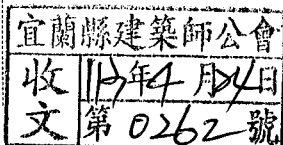 宜蘭縣建築師公會
收文
112年4月24日
第0262號